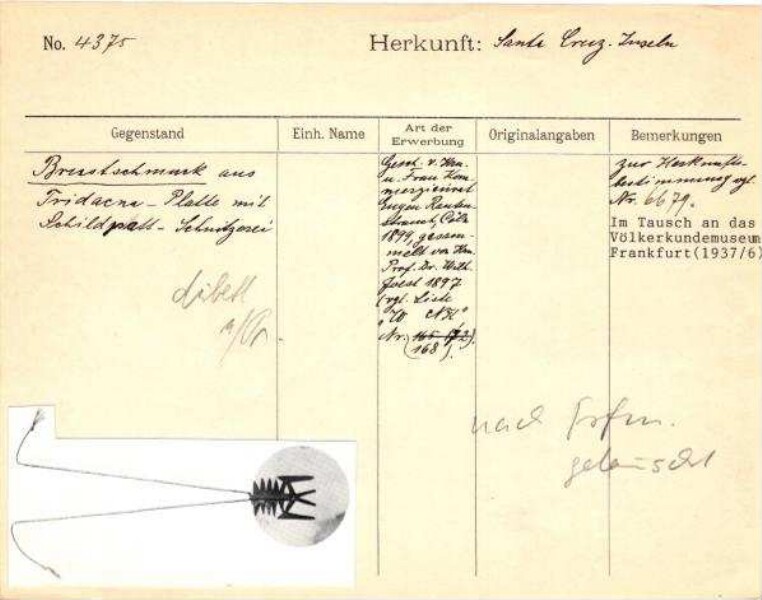 No. 4375
Herkunft: Santa Cruz-Inseln
Gegenstand
Einh. Name
Art der
Erwerbung
Originalangaben
Bemerkungen
Brustschmuck aus
Tridacna-Platte mit
Schildpatt-Schnitzerei
Gesch. v. Hrn.
u. Frau Kom-
merzienrat
Eugen Rauten-
strauch, Cöln
1899, gesam-
melt von Hrn.
Prof. Dr. Wilh.
Joest 1897
(vgl. Liste
Nr.
168).
zur Herkunfts-
bestimmung vgl.
Nr. 6679.
Im Tausch an das
Völkerkundemuseum
Frankfurt(1937/6)
nach
getauscht